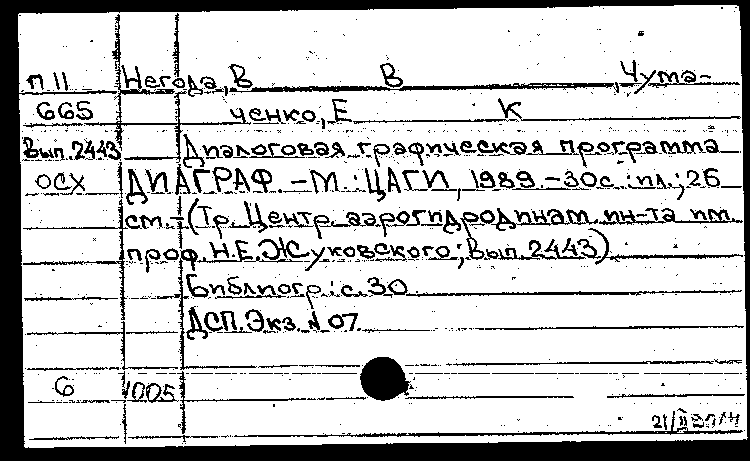 П 11 Негода, В В , Чума-
665 ченко, Е К
Вып. 2443 Диалоговая графическая программа
ОСХ ДИАГРАФ. - М.: ЦАГИ, 1989. - 30с.: ил.; 26
см. - (Тр. Центр. аэрогидродинам. ин-та им.
проф. Н.Е. Жуковского; Вып. 2443)
Библиогр.: с. 30
ДСП. Экз. N 07
6 1005